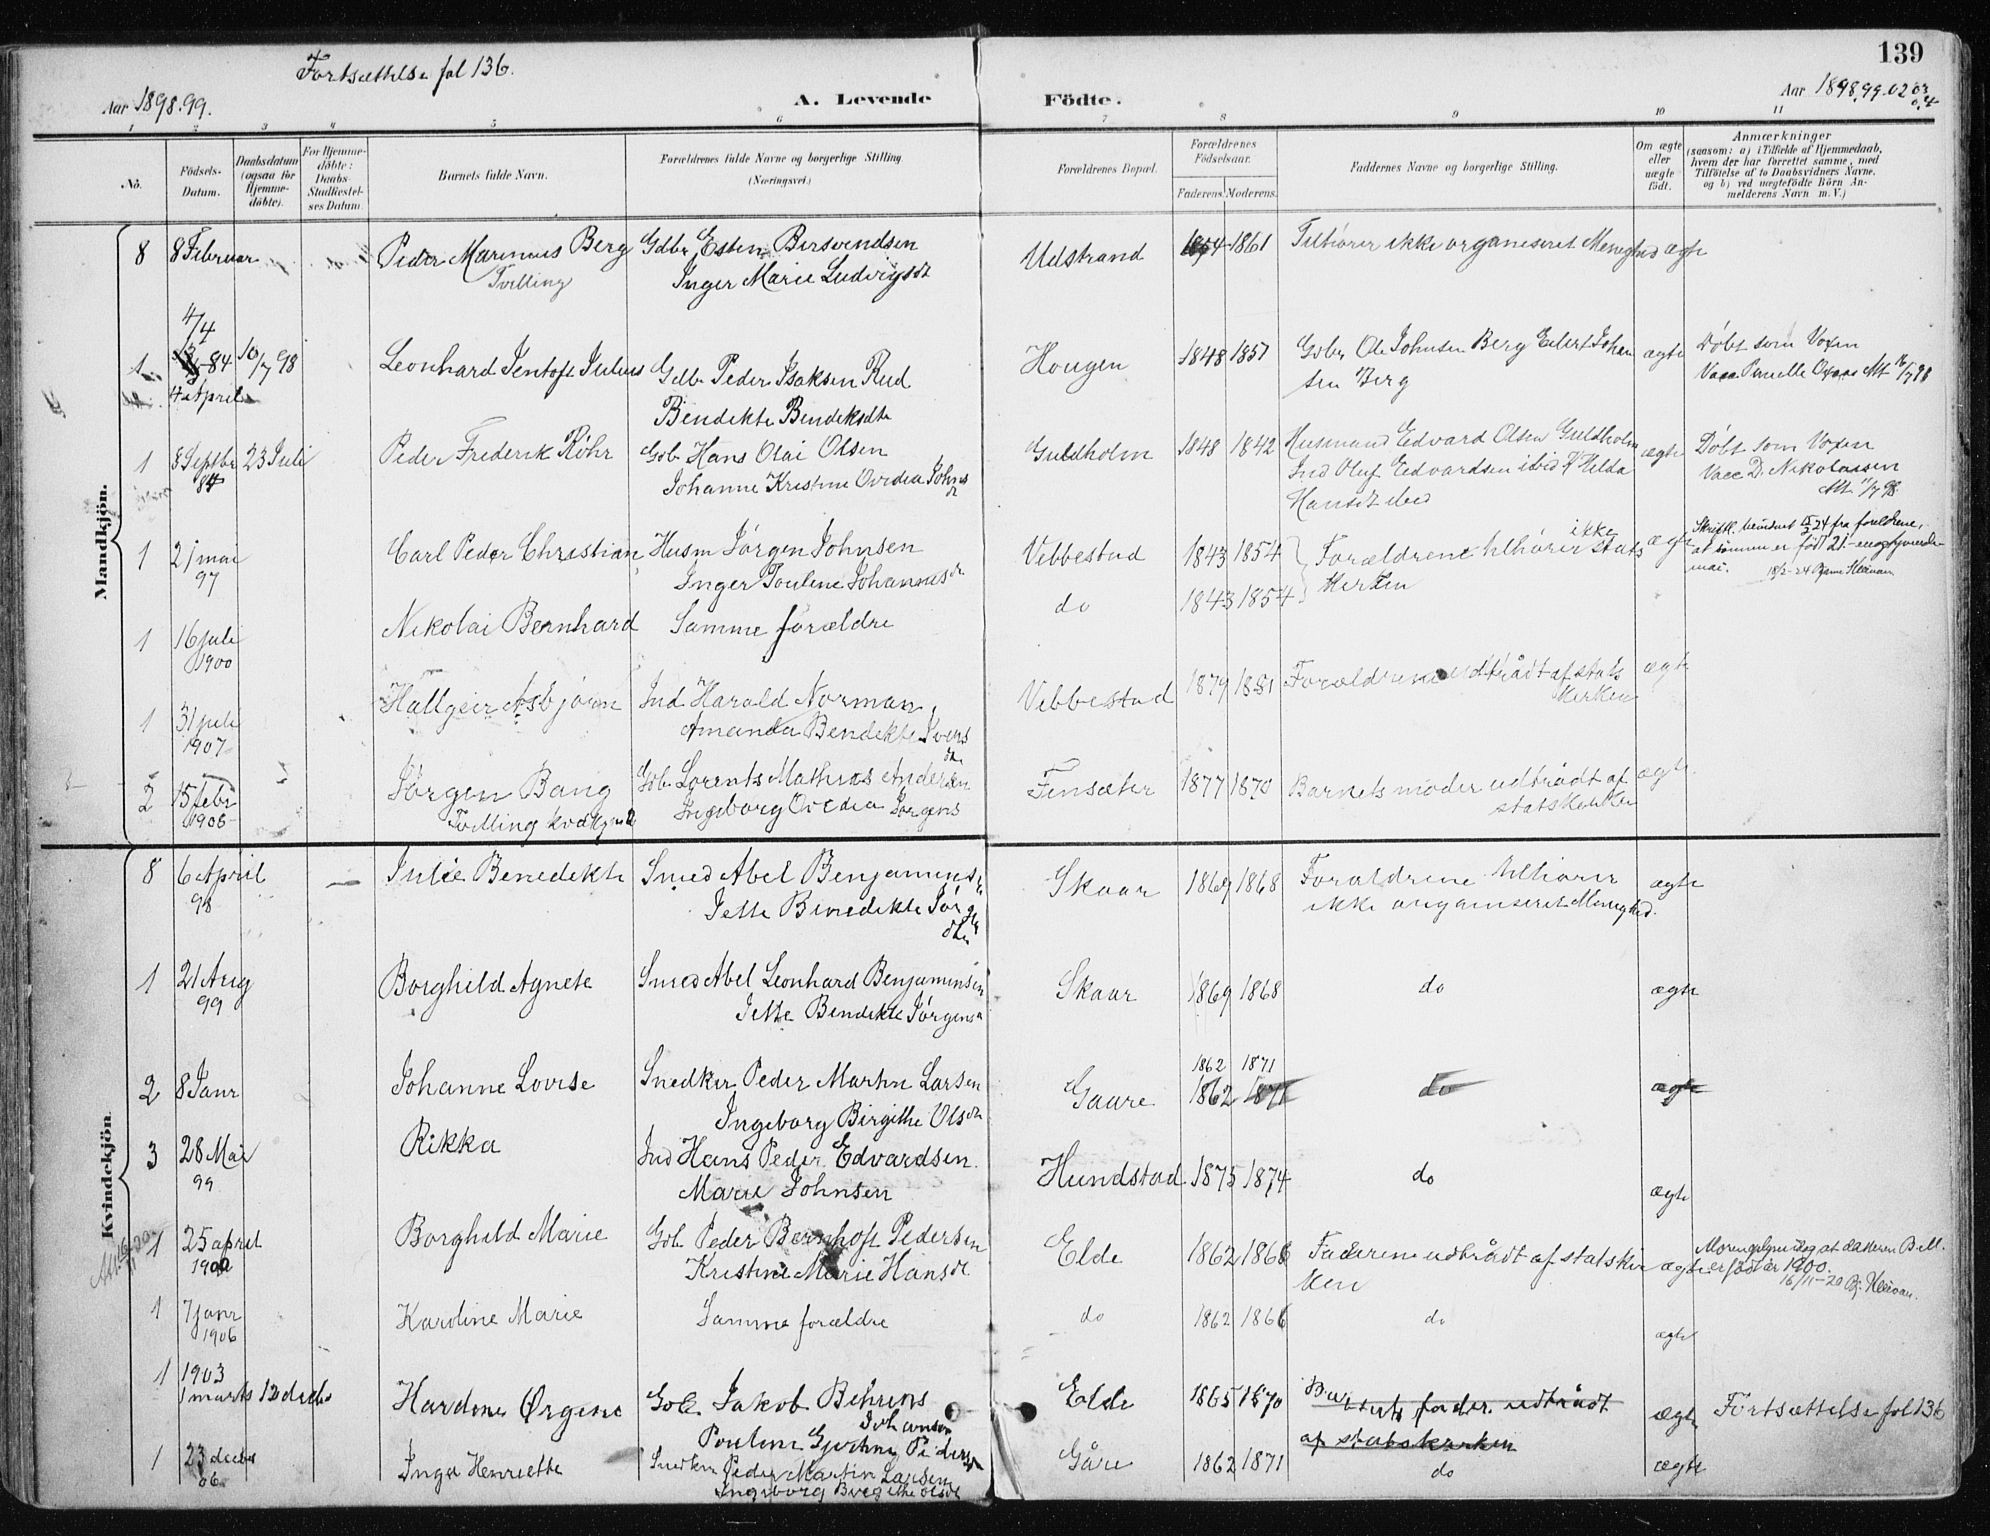 139
Fortsættelse fol 136.
Aar 1898.99.
A. Levende Födte.
Aar 1898.99.02 03 04
1 2 3 4 5 6 7 8 9 10 11
No.
Födsels-Datum.
Daabsdatum (ogsaa for Hjemme-döbte).
For Hjemme-döbte: Daabs-Stadfæstel-ses Datum.
Barnets fulde Navn.
Forældrenes fulde Navne og borgerlige Stilling (Næringsvei.)
Forældrenes Bopæl.
Forældrenes Födselsaar.
Faderens. Moderens.
Faddernes Navne og borgerlige Stilling.
Om ægte eller uægte födt.
Anmærkninger
(saasom: a) i Tilfælde af Hjemmedaab, hvem der har forrettet samme, med Tilföielse af to Daabsvidners Navne, og b) ved uægtefödte Börn An-melderens Navn m. V.)
Mandkjön.
8 8 Februar Peder Marinius Berg Gdbr Esten Bersvendsen Udstrand 1854 1861 Tilhører ikke organiseret Menighed ægte
Tvilling Inger Marie Ludvigsdt
4/4
1 84 10/7 98 Leonhard Jentoft Julius Gdb Peder Isaksen Rud Hougen 1848 1857 Gdbr Ole Johnsen Berg Eilert Johan ægte Døbt som Voxen
4 April Bendikte Bendeksdtr sen Berg Vacc Pernille
1 8 Septbr 23 Juli Peder Frederik Röhr Gdb. Hans Olai Olsen Guldholm 1848 1842 Husmand Edvard Olsen Guldholm ægte Döbt som Voxen
84 Johanne Kristine Ovedia Johns dt Ind Oluf Edvardsen ibid Hilda Vacc D. Nikolaissen
Hansdt ibid Att 11/7 98.
1 21 mai Carl Peder Christian Husm Jörgen Johnsen Vebbestad 1843 1854 Forældrene tilhører ikke stats ægte
97 Inger Pouline Johannesdt kirken
Skriftl. 24 fra foreldrene, at sønnen er født 21 mai. 18/2-24
1 16 juli Nikolai Bernhard Samme forældre do 1843 1854
1900
1 31 juli Hallgeir Asbjörn Ind Harald Norman, Vebbestad 1879 1881 Forældrene udtrådt af stats kirken ægte
1907 Amanda Bendikte Ivers dtr
2 15 febr Jörgen Bang Gdb. Lorents Mathias Andersen Finsæter 1877 1870 Barnets moder udtrådt af statskirken ægte
1906 Tvilling Ingeborg Ovedia Jörgens
Kvindekjön.
8 6 April Julie Benedikte Smed Abel Benjamins Skaar 1869 1868 Forældrene tilhører ægte
98 Jette Benedikte Jörg dtr ikke organiseret Menighed.
1 21 Aug Borghild Agnete Smed Abel Leonhard Benjaminsen Skaar 1869 1868 do ægte
99 Jette Bendikte Jörgens
2 8 Janr Johanne Lovise Snedker Peder Martin Larsen Gaare 1862 1871 do ægte
1862 1871
Ingeborg Birgithe Olsdtr
3 28 Mai Rikka Ind Hans Peder Edvardsen Hundstad 1875 1874 do ægte
99 Marie Johnsen
1 25 april Borghild Marie Gdb. Peder Bernhoft Pedersen Elde 1862 1866 Faderen udtrådt af statskir ken ægte
1900 Kristine Marie Hansdt
at datteren B.M. er født år 1900. 16/11-20 Bj.
1 7 janr Karoline Marie Samme forældre do 1862 1866 do ægte
1906
1 1903
1 marts 13 decbr Hardine Ørgine Gdb. Jakob Behrens Johansen Elde 1865 1870 Barnets fader udtrådt af statskirken ægte Fortsættelse fol 136
1 23 decbr Inga Henriette Snedker Peder Martin Larsen Gåre 1862 1871 do ægte
06 Ingeborg Birgithe Olsdt